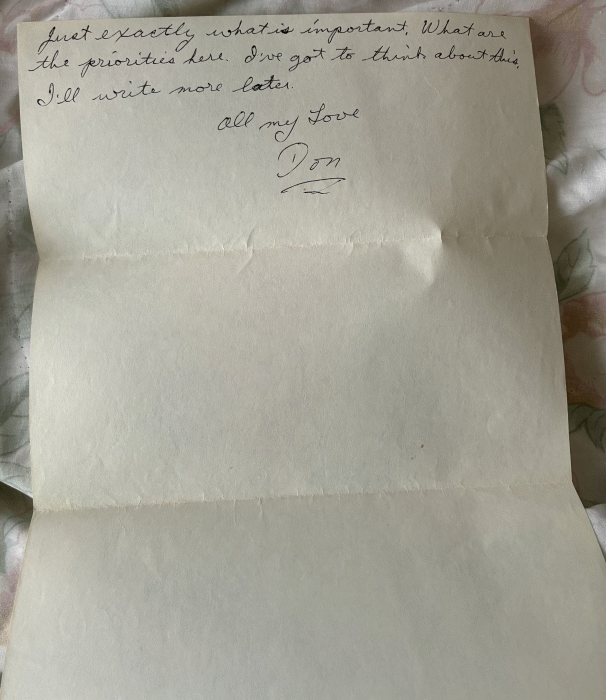 Just exactly what is important. What are
the priorities here. I've got to think about this.
I'll write more later.
all my Love
Don